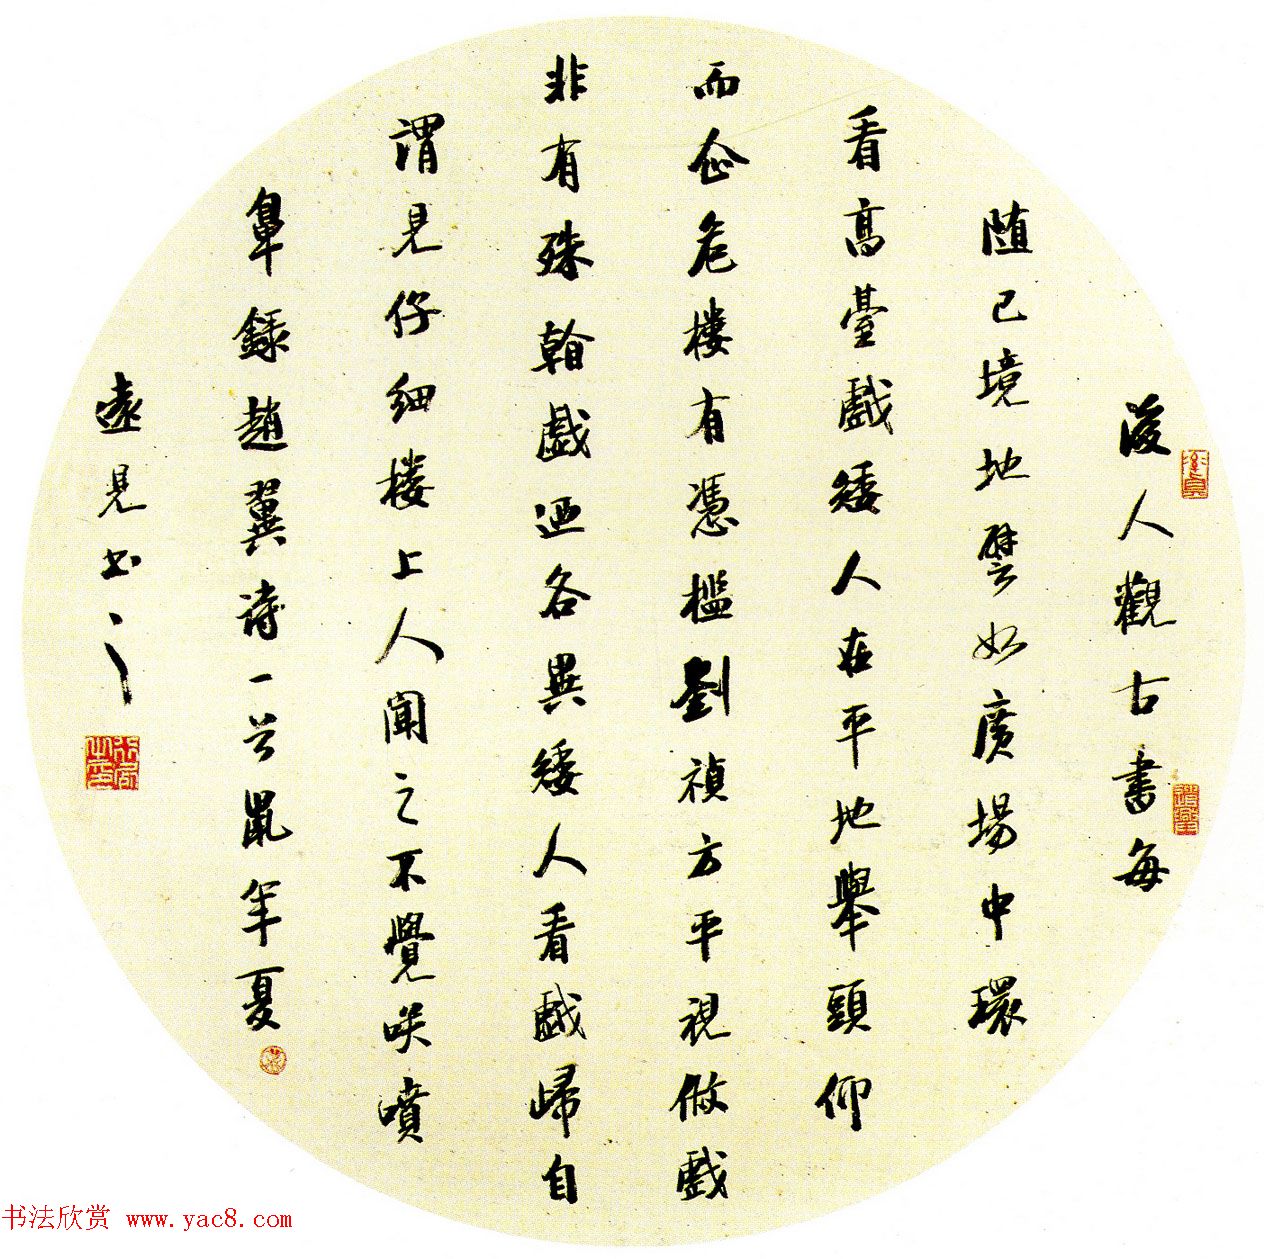 後人觀古書每
随己境地譬如廣場中環
看高臺戲矮人在平地舉頭仰
而企危樓有憑檻劉禎方平視做戲
非有殊翰戲迺各異矮人看戲歸自
謂見仔細楼上人聞之不覺咲噴
鼻録趙翼詩一首鼠年夏
遠見書之
书法欣赏 www.yac8.com